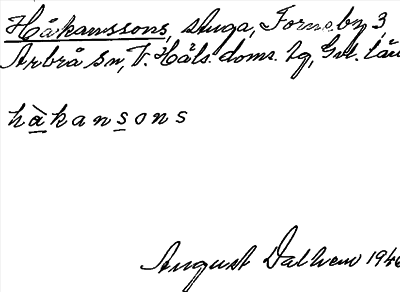 Håkanssons, stuga, Forneby 3,
Arbrå sn, V. Häls. doms. tg, Gvl. län
hàkansons
August Dalhem 1946